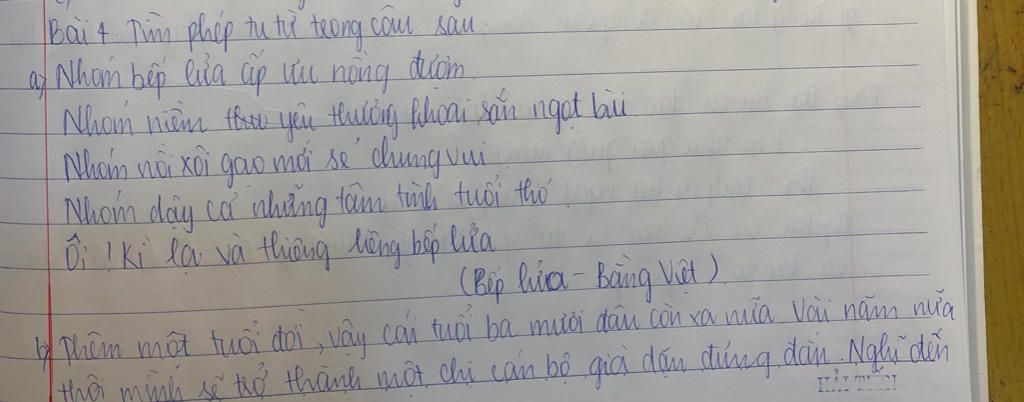 Bài 4. Tìm phép tu từ trong câu sau
a) Nhóm bếp lửa ấp iu nồng đượm
Nhóm niềm yêu thương khoai sắn ngọt bùi
Nhóm nồi xôi gạo mới sẻ chung vui
Nhóm dậy cả những tâm tình tuổi thơ
Ôi! Kì lạ và thiêng liêng bếp lửa
(Bếp lửa - Bằng Việt)
b) Thêm một tuổi đời, vậy cái tuổi ba mươi đâu còn xa nữa Vài năm nữa
thôi mình sẽ trở thành một chị cán bộ già dặn đúng đắn. Nghĩ đến
HẢI TIẾN